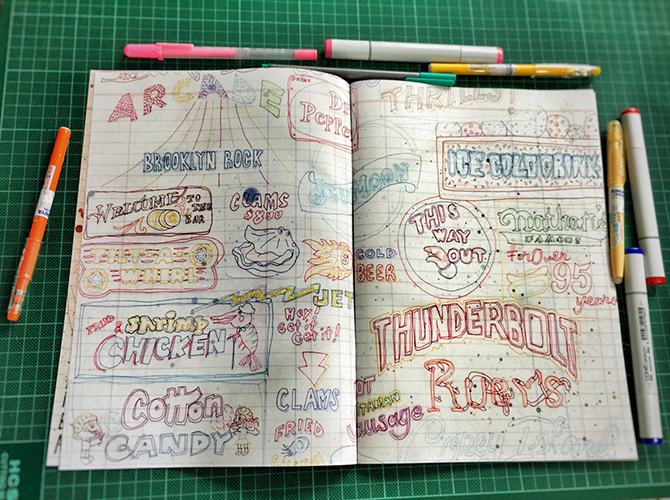 ARCADE
DRINK
DR
PEPPER
BROOKLYN ROCK
WELCOME TO THE
BAR
CLAMS
$8.00
TILT-A-
WHIRL
FRIED & Shrimp
CHICKEN
JET
Hey!
Get it
Get it!
CLAMS
FRIED
Cotton
CANDY
THRILLS!
ICE COLD DRINK
MOON
THIS
WAY
OUT
Nathan's
FAMOUS
For Over
95
years
COLD
BEER
THUNDERBOLT
ROOMS
HOT
ITALIAN
Sausage